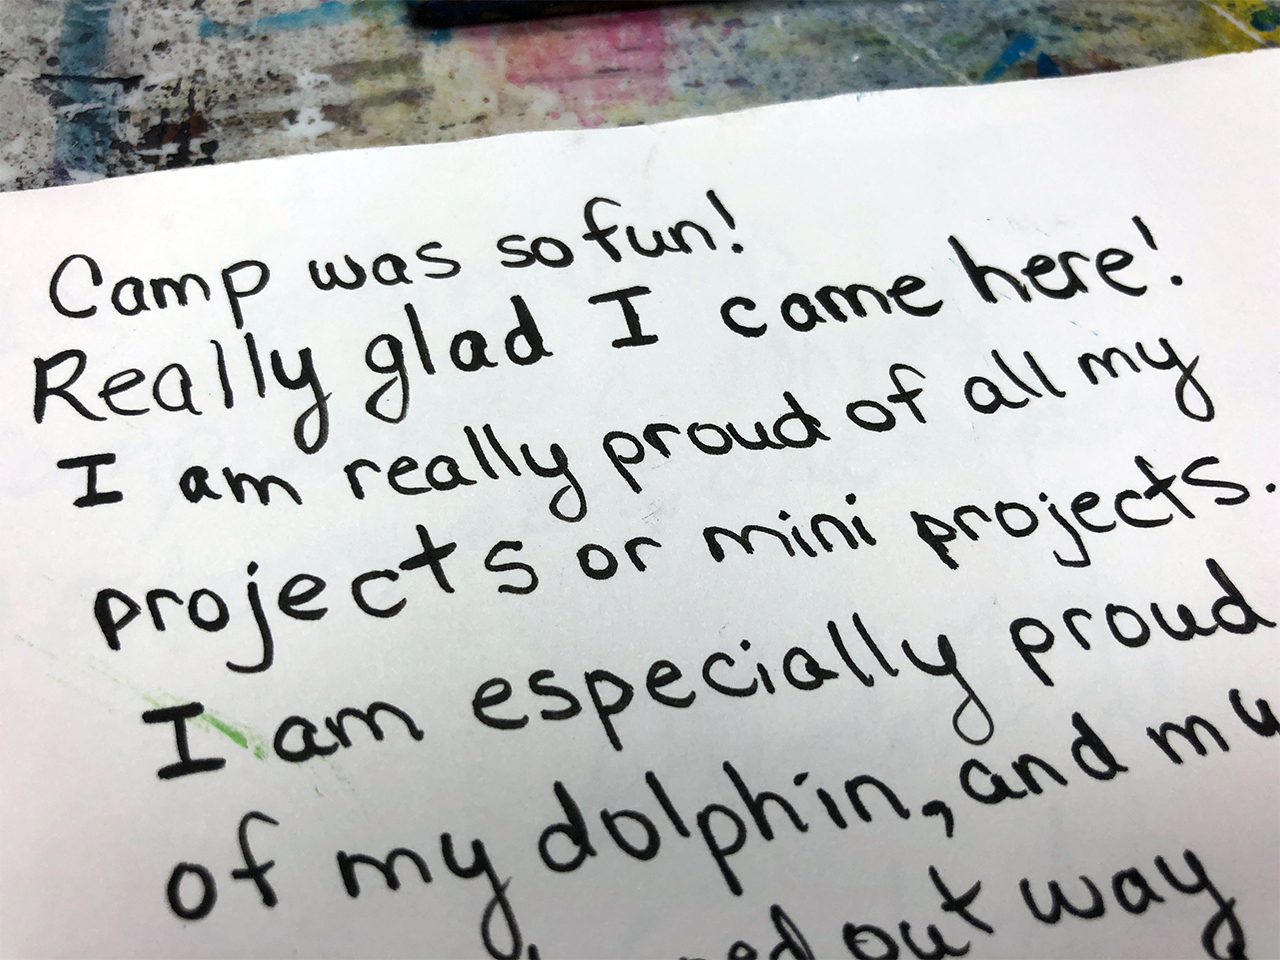 Camp was so fun!
Really glad I came here!
I am really proud of all my
projects or mini projects.
I am especially proud
of my dolphin, and
out way